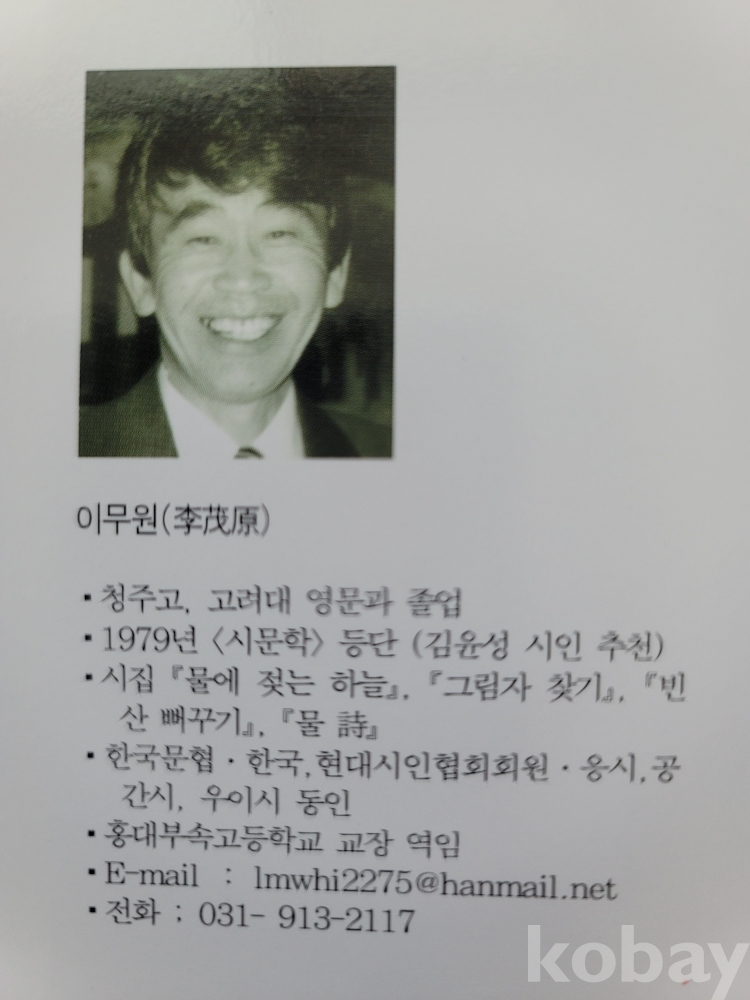 이무원(李茂原)
▪청주고, 고려대 영문과 졸업
▪1979년 〈시문학〉 등단 (김윤성 시인 추천)
▪시집 『물에 젖는 하늘』, 『그림자 찾기』, 『빈
산 뻐꾸기』, 『물 詩』
▪한국문협 · 한국,현대시인협회회원 · 응시,공
간시, 우이시 동인
▪홍대부속고등학교 교장 역임
▪E-mail : lmwhi2275@hanmail.net
▪전화 ; 031- 913-2117
kobay